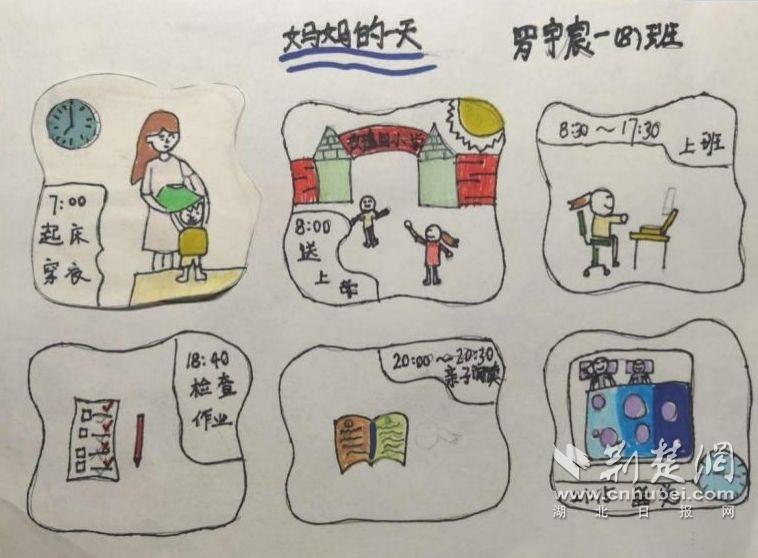 妈妈的一天
罗宇宸一(8)班
7:00
起床
穿衣
小学
8:00
送
上学
8:30～17:30
上班
18:40
检查
作业
20:00～20:30
亲子阅读
荆楚网
www.cnhubei.com
湖北日报网